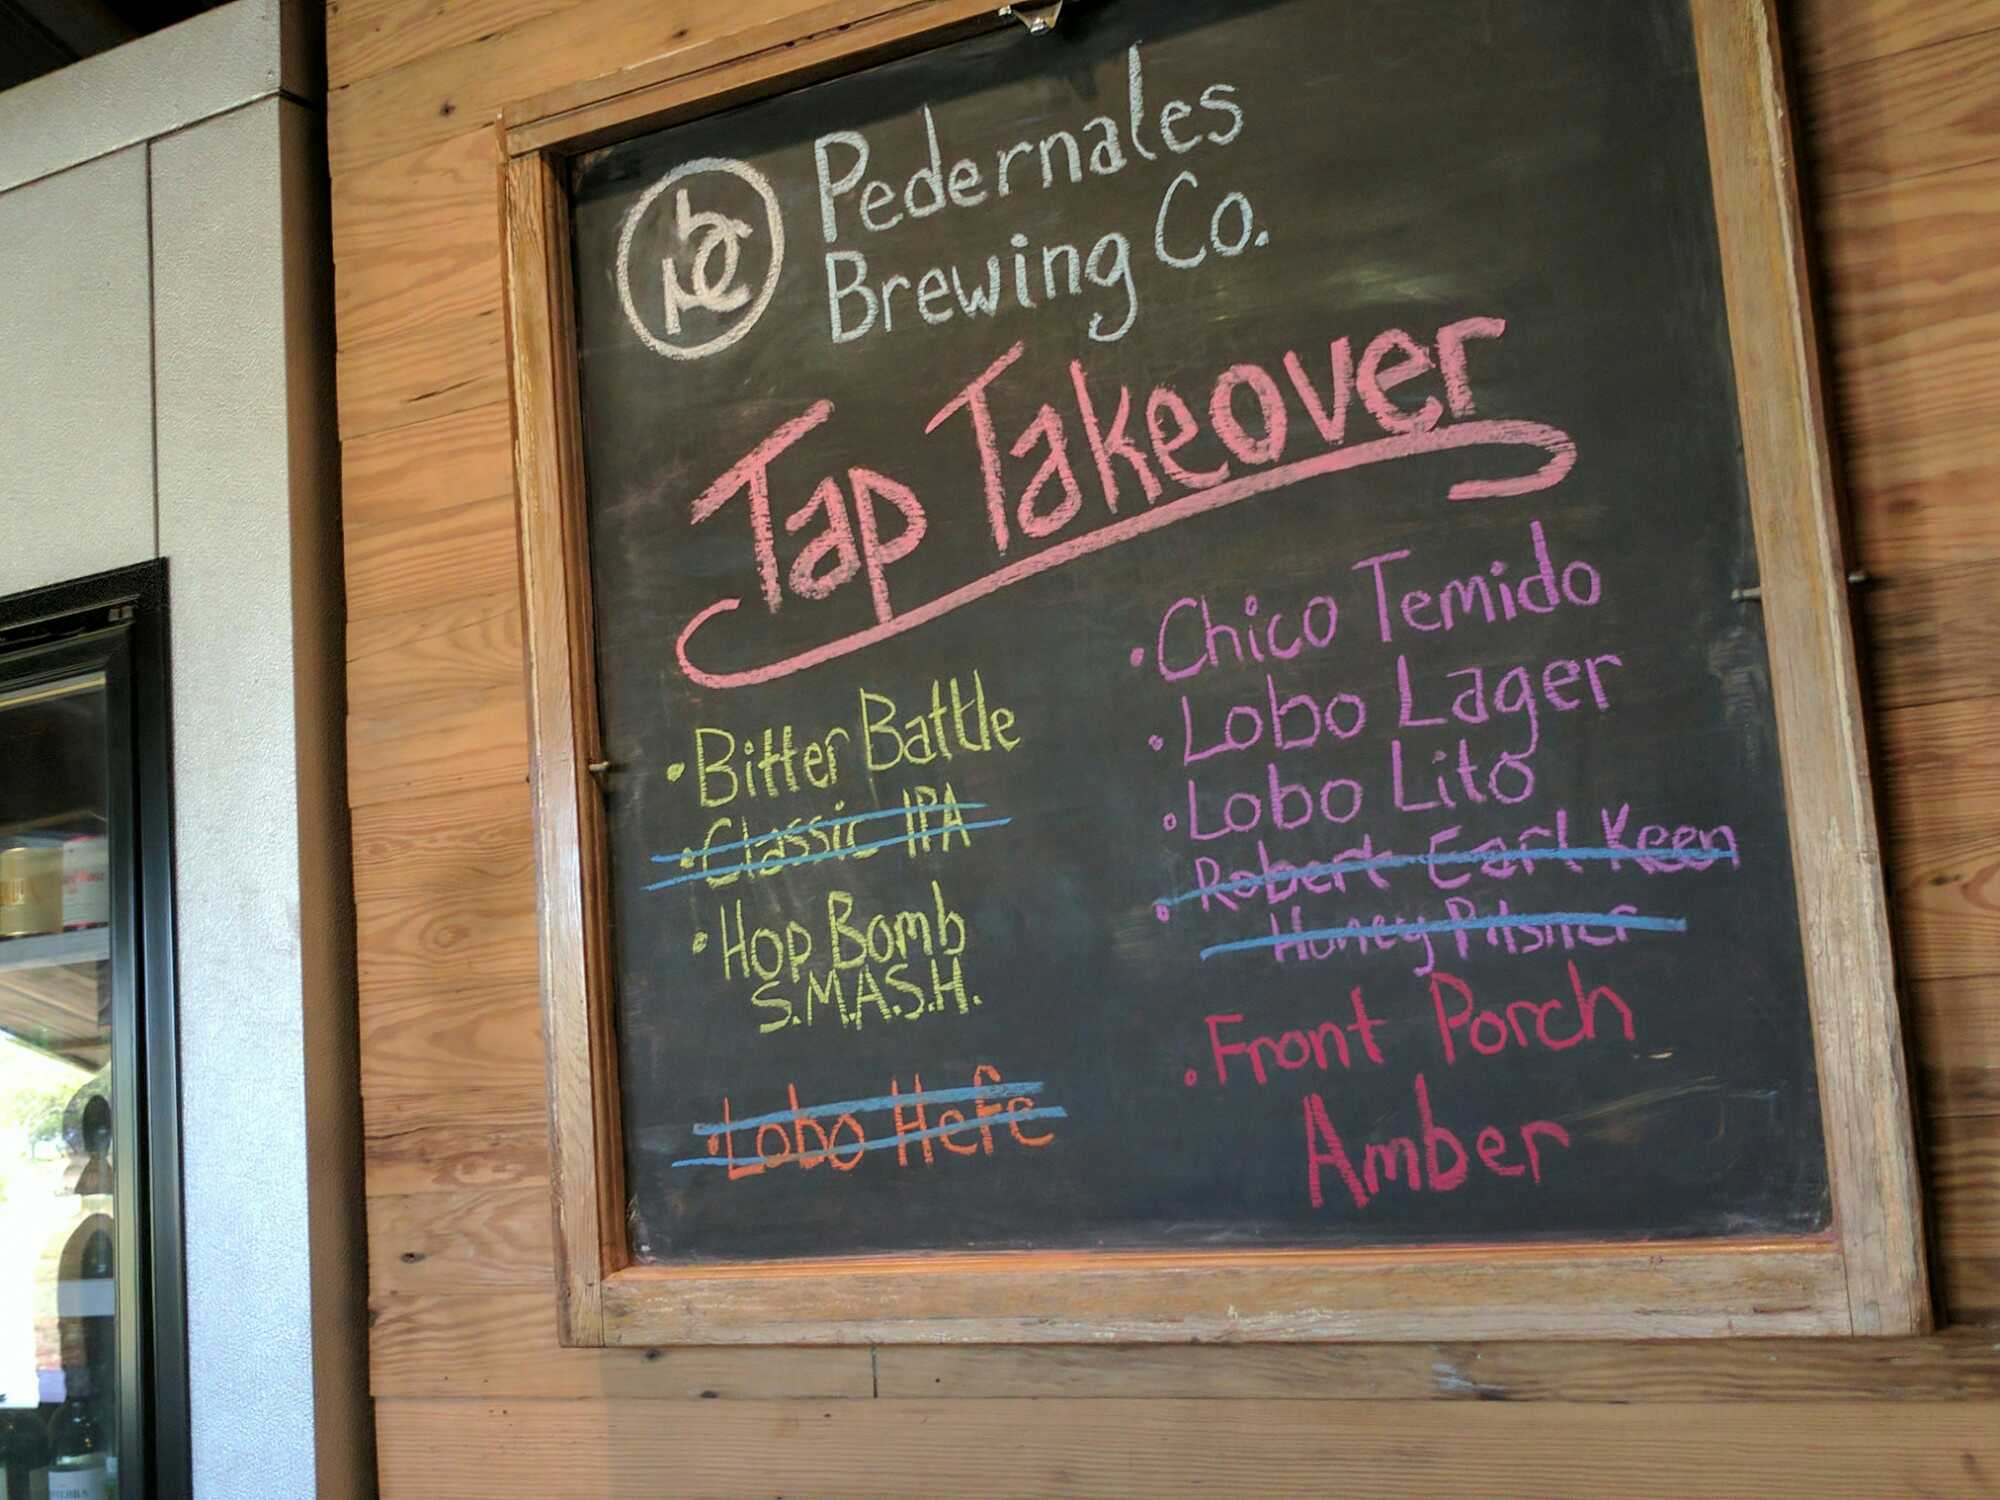 Pedernales
Brewing Co.
Tap Takeover
• Bitter Battle
• Classic IPA
• Hop Bomb
S.M.A.S.H.
• Lobo Hefe
• Chico Temido
• Lobo Lager
• Lobo Lito
• Robert Earl Keen
Honey Pilsner
• Front Porch
Amber